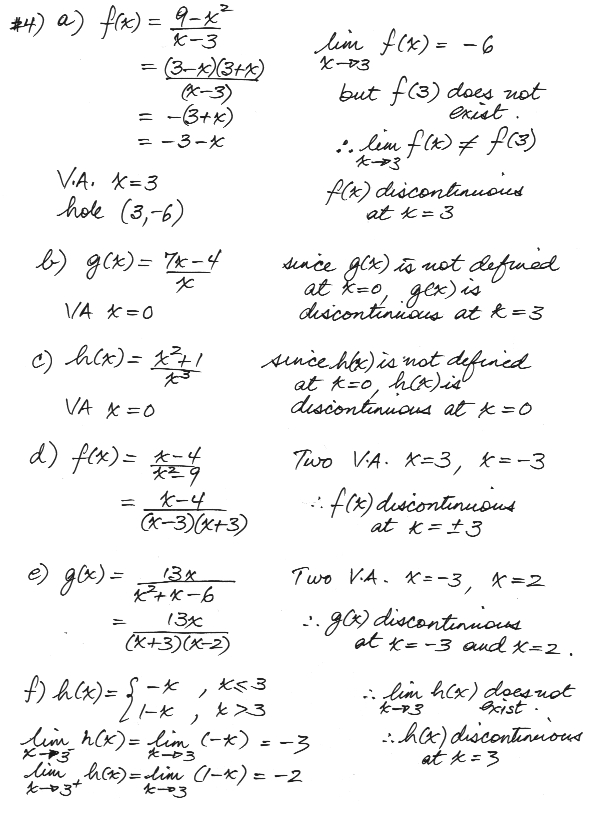 #4) a) f(x) = 9-x² / x-3
= (3-x)(3+x) / (x-3)
= -(3+x)
= -3-x
V.A. x=3
hole (3,-6)
lim x→3 f(x) = -6
but f(3) does not
exist.
∴ lim x→3 f(x) ≠ f(3)
f(x) discontinuous
at x=3
b) g(x) = 7x-4 / x
VA x=0
since g(x) is not defined
at x=0, g(x) is
discontinuous at x=3
c) h(x) = x²+1 / x³
VA x=0
since h(x) is not defined
at x=0, h(x) is
discontinuous at x=0
d) f(x) = x-4 / x²-9
= x-4 / (x-3)(x+3)
Two V.A. x=3, x=-3
∴ f(x) discontinuous
at x=±3
e) g(x) = 13x / x²+x-6
= 13x / (x+3)(x-2)
Two V.A. x=-3, x=2
∴ g(x) discontinuous
at x=-3 and x=2.
f) h(x) = { -x , x≤3
1-x , x>3
lim x→3⁻ h(x) = lim x→3 (-x) = -3
lim x→3⁺ h(x) = lim x→3 (1-x) = -2
∴ lim x→3 h(x) does not
exist.
∴ h(x) discontinuous
at x=3